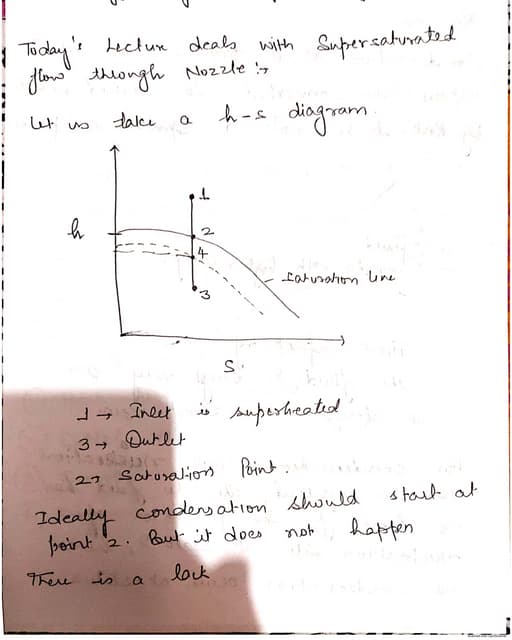 Today's Lecture deals with Supersaturated
flow through Nozzle :→
Let us take a h-s diagram.
1
h
2
4
saturation line
3
S.
1 → Inlet is superheated
3 → Outlet
2 → Saturation Point.
Ideally condensation should start at
point 2. But it does not happen
There is a lack